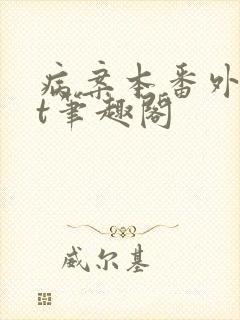 病案本番外
t笔趣阁
威尔基